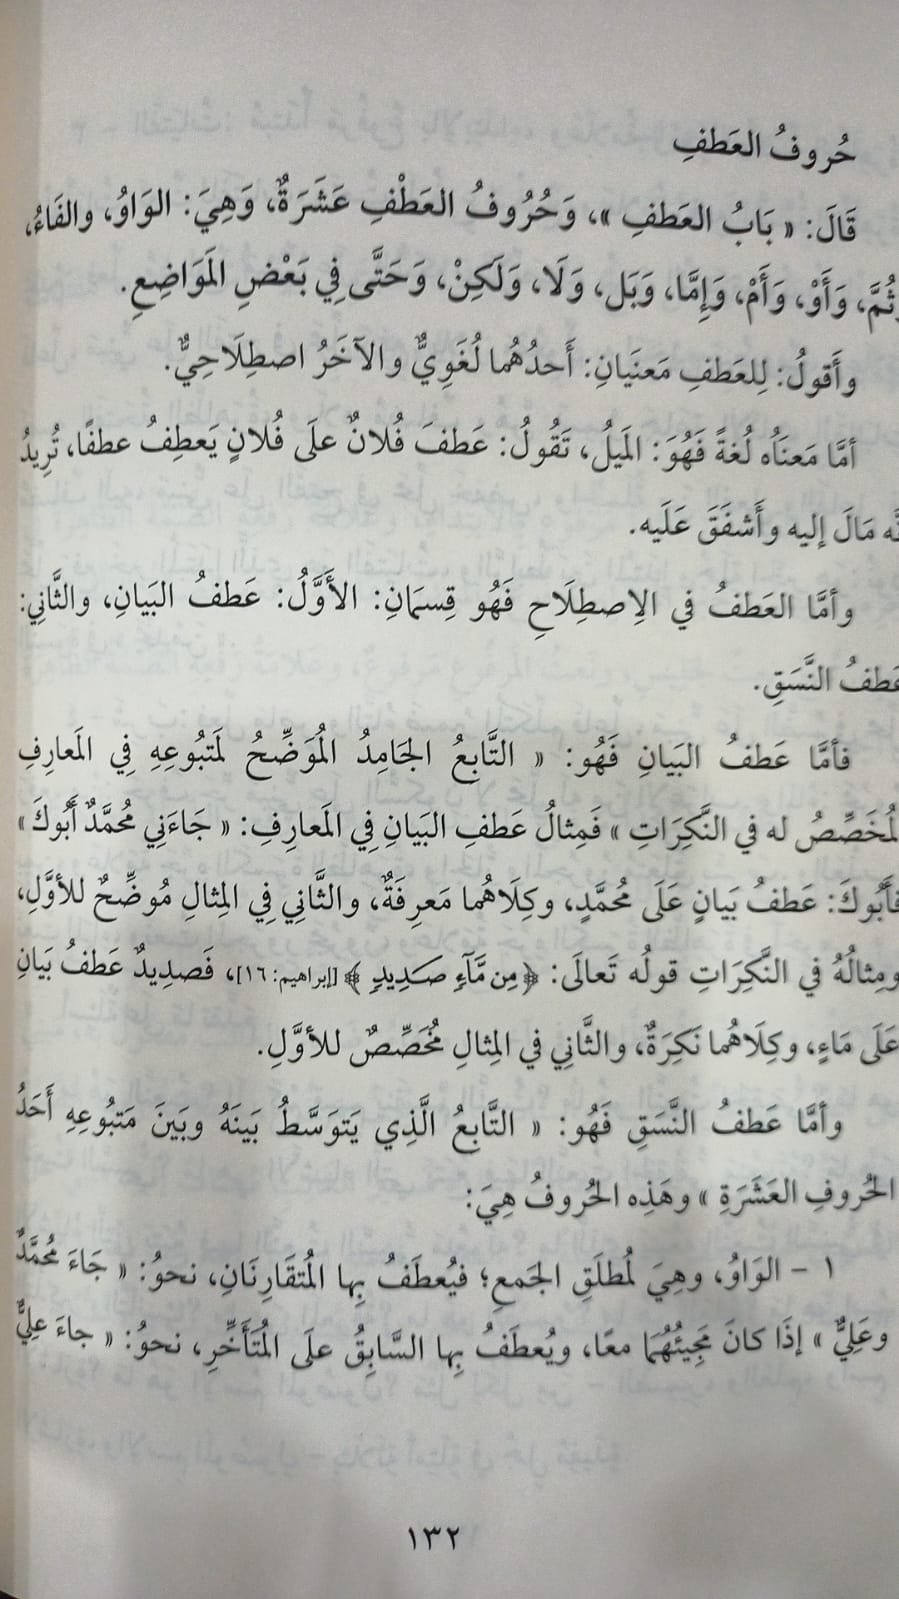 حُروفُ العَطفِ
قَالَ: « بَابُ العَطفِ »، وَحُرُوفُ العَطْفِ عَشَرَةٌ، وَهِيَ: الوَاوُ، والفَاءُ،
وثُمَّ، وَأَوْ، وَأَمْ، وَإِمَّا، وَبَل، وَلَا، وَلَكِنْ، وَحَتَّى فِي بَعْضِ المَوَاضِعِ.
وأَقولُ: لِلعَطفِ مَعنَيانِ: أَحدُهُما لُغَوِيٌّ والآخَرُ اصطِلَاحِيٌّ.
أمَّا مَعنَاه لُغةً فَهُوَ: المَيلُ، تَقُولُ: عَطفَ فُلانٌ علَى فُلانٍ يَعطِفُ عطفًا، تُرِيدُ
أنَّه مَالَ إليه وأَشفَقَ عَلَيه.
وأمَّا العَطفُ في الِاصطِلَاحِ فَهُو قِسمَانِ: الأَوَّلُ: عَطفُ البَيانِ، والثَّانِي:
عَطفُ النَّسَقِ.
فأمَّا عَطفُ البَيانِ فَهُو: « التَّابعُ الجَامِدُ المُوَضِّحُ لمَتبُوعِهِ فِي المَعارِفِ
المُخَصِّصُ له في النَّكِرَاتِ » فَمِثالُ عَطفِ البَيانِ فِي المَعارِفِ: « جَاءَنِي مُحمَّدٌ أَبُوكَ »
فأَبُوكَ: عَطفُ بَيانٍ عَلَى مُحمَّدٍ، وكِلَاهُما مَعرِفَةٌ، والثَّانِي فِي المِثالِ مُوضِّحٌ للأوَّلِ،
ومِثالُهُ في النَّكِرَاتِ قولُه تَعالَى: ﴿ مِن مَّآءٖ صَدِيدٖ ﴾ [إبراهيم: ١٦]، فَصدِيدٌ عَطفُ بَيانٍ
عَلَى مَاءٍ، وكِلَاهُما نَكِرَةٌ، والثَّانِي في المِثالِ مُخَصِّصٌ للأوَّلِ.
وأمَّا عَطفُ النَّسَقِ فَهُو: « التَّابعُ الَّذِي يَتوَسَّطُ بَينَهُ وبَينَ مَتبُوعِهِ أَحَدُ
الحُروفِ العَشَرَةِ » وهَذِه الحُروفُ هِيَ:
١ - الوَاوُ، وهِيَ لمُطلَقِ الجَمعِ؛ فيُعطَفُ بِها المُتقَارِنَانِ، نحوُ: « جَاءَ مُحمَّدٌ
وعَلِيٌّ » إذَا كانَ مَجِيئُهُمَا معًا، ويُعطَفُ بِها السَّابِقُ علَى المُتَأَخِّرِ، نحوُ: « جاءَ عِليٌّ
١٣٢